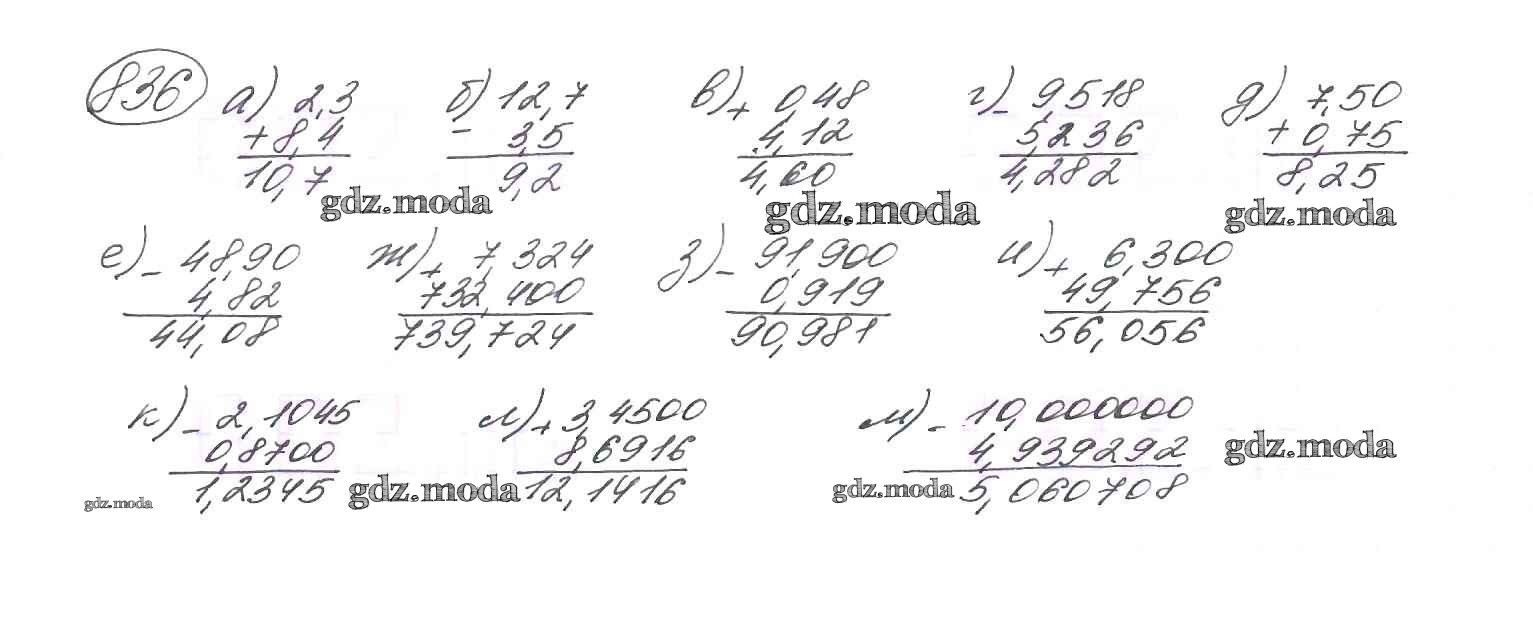 836 а) 2,3 б) 12,7 в) + 0,48 г) - 9,518 д) 7,50
+ 8,4 - 3,5 4,12 5,236 + 0,75
10,7 9,2 4,60 4,282 8,25
gdz.moda gdz.moda gdz.moda
е) - 48,90 ж) + 7,324 з) - 91,900 и) + 6,300
4,82 732,400 0,919 49,756
44,08 739,724 90,981 56,056
к) - 2,1045 л) + 3,4500 м) - 10,000000
0,8700 8,6916 4,939292 gdz.moda
gdz.moda 1,2345 gdz.moda 12,1416 gdz.moda 5,060708